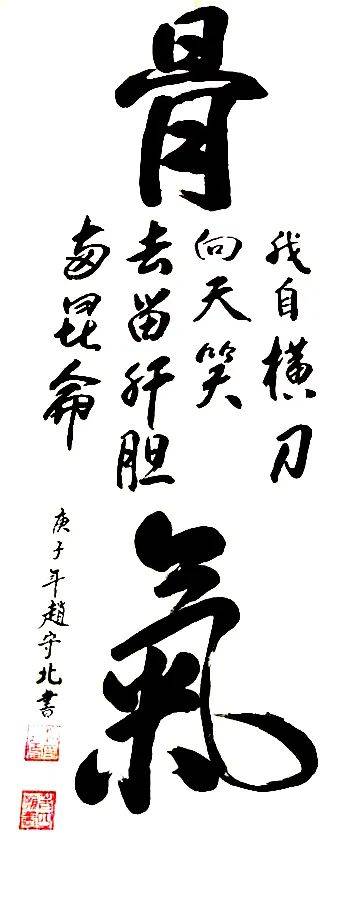 骨
我自橫刀
向天笑
去留肝胆
两昆侖
氣
庚子年趙守北書